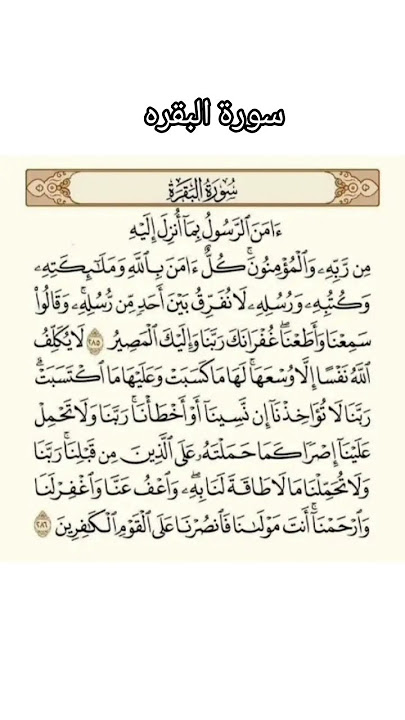 سورة البقره
سُورَةُ البَقَرَةِ
ءَامَنَ ٱلرَّسُولُ بِمَآ أُنزِلَ إِلَيْهِ
مِن رَّبِّهِۦ وَٱلْمُؤْمِنُونَۚ كُلٌّ ءَامَنَ بِٱللَّهِ وَمَلَٰٓئِكَتِهِۦ
وَكُتُبِهِۦ وَرُسُلِهِۦ لَا نُفَرِّقُ بَيْنَ أَحَدٍ مِّن رُّسُلِهِۦۚ وَقَالُوا۟
سَمِعْنَا وَأَطَعْنَاۖ غُفْرَانَكَ رَبَّنَا وَإِلَيْكَ ٱلْمَصِيرُ ٢٨٥ لَا يُكَلِّفُ
ٱللَّهُ نَفْسًا إِلَّا وُسْعَهَاۚ لَهَا مَا كَسَبَتْ وَعَلَيْهَا مَا ٱكْتَسَبَتْۗ
رَبَّنَا لَا تُؤَاخِذْنَآ إِن نَّسِينَآ أَوْ أَخْطَأْنَاۚ رَبَّنَا وَلَا تَحْمِلْ
عَلَيْنَآ إِصْرًا كَمَا حَمَلْتَهُۥ عَلَى ٱلَّذِينَ مِن قَبْلِنَاۚ رَبَّنَا
وَلَا تُحَمِّلْنَا مَا لَا طَاقَةَ لَنَا بِهِۦۖ وَٱعْفُ عَنَّا وَٱغْفِرْ لَنَا
وَٱرْحَمْنَآۚ أَنتَ مَوْلَىٰنَا فَٱنصُرْنَا عَلَى ٱلْقَوْمِ ٱلْكَٰفِرِينَ ٢٨٦